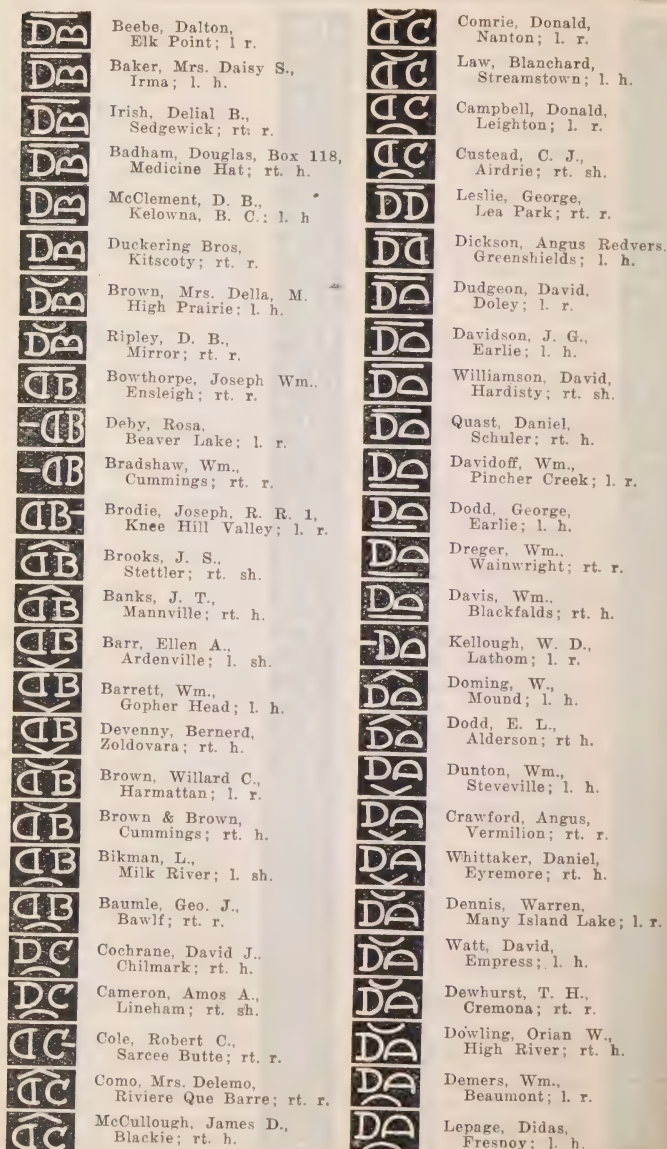 Beebe, Dalton,
Elk Point; l r.
Baker, Mrs. Daisy S.,
Irma; l. h.
Irish, Delial B.,
Sedgewick; rt. r.
Badham, Douglas, Box 118,
Medicine Hat; rt. h.
McClement, D. B.,
Kelowna, B. C.; l. h
Duckering Bros,
Kitscoty; rt. r.
Brown, Mrs. Della, M.
High Prairie; l. h.
Ripley, D. B.,
Mirror; rt. r.
Bowthorpe, Joseph Wm..
Ensleigh; rt. r.
Deby, Rosa,
Beaver Lake; l. r.
Bradshaw, Wm.,
Cummings; rt. r.
Brodie, Joseph, R. R. 1,
Knee Hill Valley; l. r.
Brooks, J. S.,
Stettler; rt. sh.
Banks, J. T.,
Mannville; rt. h.
Barr, Ellen A.,
Ardenville; l. sh.
Barrett, Wm.,
Gopher Head; l. h.
Devenny, Bernerd,
Zoldovara; rt. h.
Brown, Willard C.,
Harmattan; l. r.
Brown & Brown,
Cummings; rt. h.
Bikman, L.,
Milk River; l. sh.
Baumle, Geo. J.,
Bawlf; rt. r.
Cochrane, David J..
Chilmark; rt. h.
Cameron, Amos A.,
Lineham; rt. sh.
Cole, Robert C.,
Sarcee Butte; rt. r.
Como, Mrs. Delemo,
Riviere Que Barre; rt. r.
McCullough, James D.,
Blackie; rt. h.
Comrie, Donald,
Nanton; l. r.
Law, Blanchard,
Streamstown; l. h.
Campbell, Donald,
Leighton; l. r.
Custead, C. J.,
Airdrie; rt. sh.
Leslie, George,
Lea Park; rt. r.
Dickson, Angus Redvers.
Greenshields; l. h.
Dudgeon, David,
Doley; l. r.
Davidson, J. G.,
Earlie; l. h.
Williamson, David,
Hardisty; rt. sh.
Quast, Daniel,
Schuler; rt. h.
Davidoff, Wm.,
Pincher Creek; l. r.
Dodd, George,
Earlie; l. h.
Dreger, Wm..
Wainwright; rt. r.
Davis, Wm.,
Blackfalds; rt. h.
Kellough, W. D.,
Lathom; l. r.
Doming, W.,
Mound; l. h.
Dodd, E. L.,
Alderson; rt h.
Dunton, Wm.,
Steveville; l. h.
Crawford, Angus,
Vermilion; rt. r.
Whittaker, Daniel,
Eyremore; rt. h.
Dennis, Warren,
Many Island Lake; l. r.
Watt, David,
Empress; l. h.
Dewhurst, T. H.,
Cremona; rt. r.
Dowling, Orian W.,
High River; rt. h.
Demers, Wm.,
Beaumont; l. r.
Lepage, Didas,
Fresnoy; l. h.